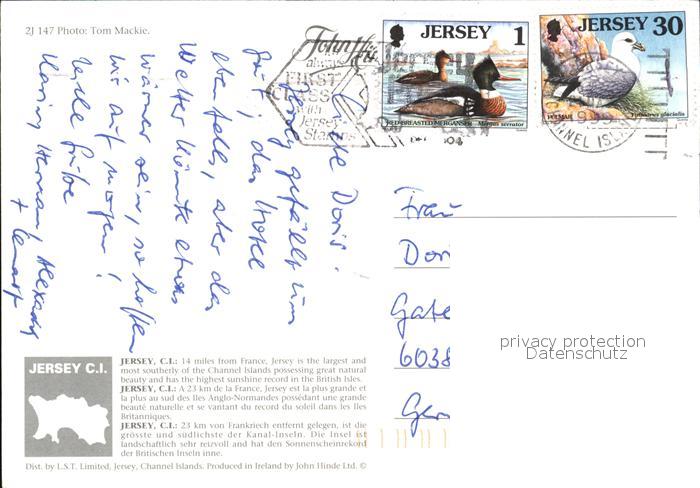 2J 147 Photo: Tom Mackie.
John Hinde
always
FIRST
CLASS
with
Jersey
Stamps
JERSEY 1
RED-BREASTED MERGANSER Mergus serrator
JERSEY 30
FULMAR Fulmarus glacialis
Doris,
Jersey gefällt uns
gut, das Hotel
ebenfalls, aber das
Wetter könnte etwas
wärmer sein, so hoffen
wir auf morgen!
Liebe Grüße
Herman, Alexandra
+ Lennart
Frau
Dori
Gate
6038
Ger
privacy protection
Datenschutz
JERSEY C.I.
JERSEY, C.I.: 14 miles from France, Jersey is the largest and
most southerly of the Channel Islands possessing great natural
beauty and has the highest sunshine record in the British Isles.
JERSEY, C.I.: A 23 km de la France, Jersey est la plus grande et
la plus au sud des Iles Anglo-Normandes possédant une grande
beauté naturelle et se vantant du record du soleil dans les Iles
Britanniques.
JERSEY, C.I.: 23 km von Frankriech entfernt gelegen, ist die
grösste und südlichste der Kanal-Inseln. Die Insel ist
landschaftlich sehr reizvoll and hat den Sonnenscheinrekord
der Britischen Inseln inne.
Dist. by L.S.T. Limited, Jersey, Channel Islands. Produced in Ireland by John Hinde Ltd. ©